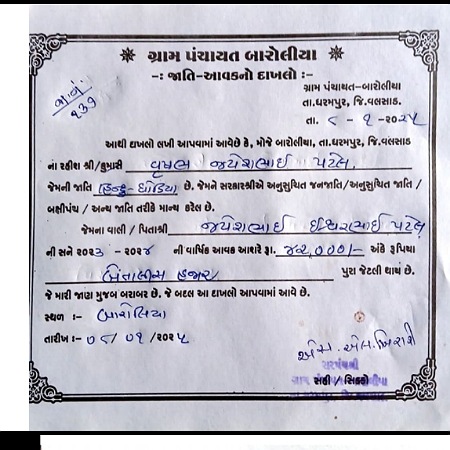 ગ્રામ પંચાયત બારોલીયા
-: જાતિ-આવકનો દાખલો :-
૧૩૭
ગ્રામ પંચાયત-બારોલીયા
તા.ધરમપુર, જિ.વલસાડ
તા. ૮ - ૧ -૨૦૨૫
આથી દાખલો લખી આપવામાં આવેછે કે, મોજે બારોલીયા, તા.ધરમપુર, જિ.વલસાડ
ના રહીશ શ્રી/કુમારી વૃષભ જયેશભાઈ પટેલ
જેમની જાતિ હિન્દુ-ધોડિયા છે. જેમને સરકારશ્રીએ અનુસુચિત જનજાતિ/અનુસુચિત જાતિ /
બક્ષીપંચ / અન્ય જાતિ તરીકે માન્ય કરેલ છે.
જેમના વાલી / પિતાશ્રી જયેશભાઈ ઈશ્વરભાઈ પટેલ
ની સને ૨૦૨૩ - ૨૦૨૪ ની વાર્ષિક આવક આશરે રૂા. ૪૨,૦૦૦/- અંકે રૂપિયા
બેતાલીસ હજાર પુરા જેટલી થાય છે.
જે મારી જાણ મુજબ બરાબર છે. જે બદલ આ દાખલો આપવામાં આવે છે.
સ્થળ :- બારોલિયા
તારીખ :- ૦૮/૦૧/૨૦૨૫
સરપંચશ્રી
સહી / સિક્કો